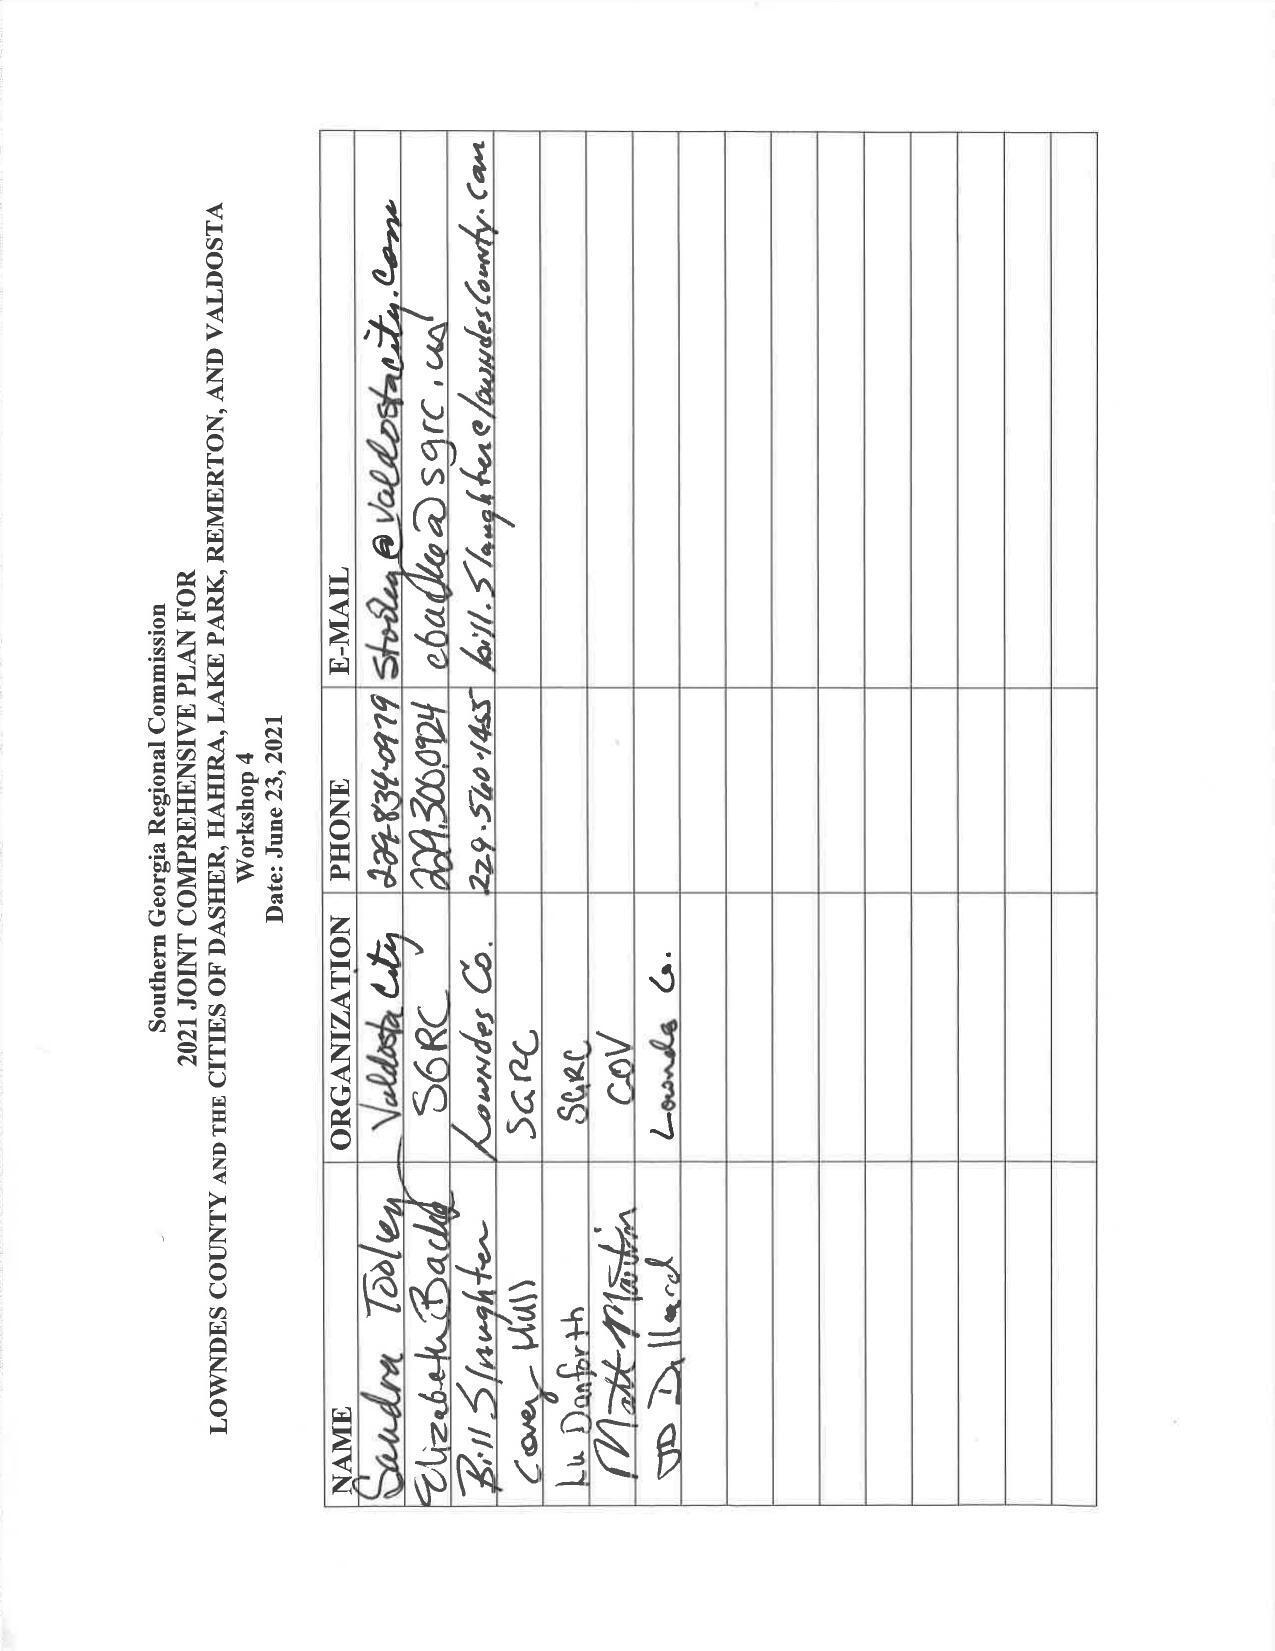 Southern Georgia Regional Commission
2021 JOINT COMPREHENSIVE PLAN FOR
LOWNDES COUNTY AND THE CITIES OF DASHER, HAHIRA, LAKE PARK, REMERTON, AND VALDOSTA
Workshop 4
Date: June 23, 2021
NAME ORGANIZATION PHONE E-MAIL
Sandra Tooley Valdosta City 229-834-0979 stooley@valdostacity.com
Elizabeth Backe SGRC 229.300.0924 ebacke@sgrc.us
Bill Slaughter Lowndes Co. 229.560.1465 bill.slaughter@lowndescounty.com
Corey Hull SGRC
Lu Danforth SGRC
Matt Martin COV
JD Dillard Lowndes Co.